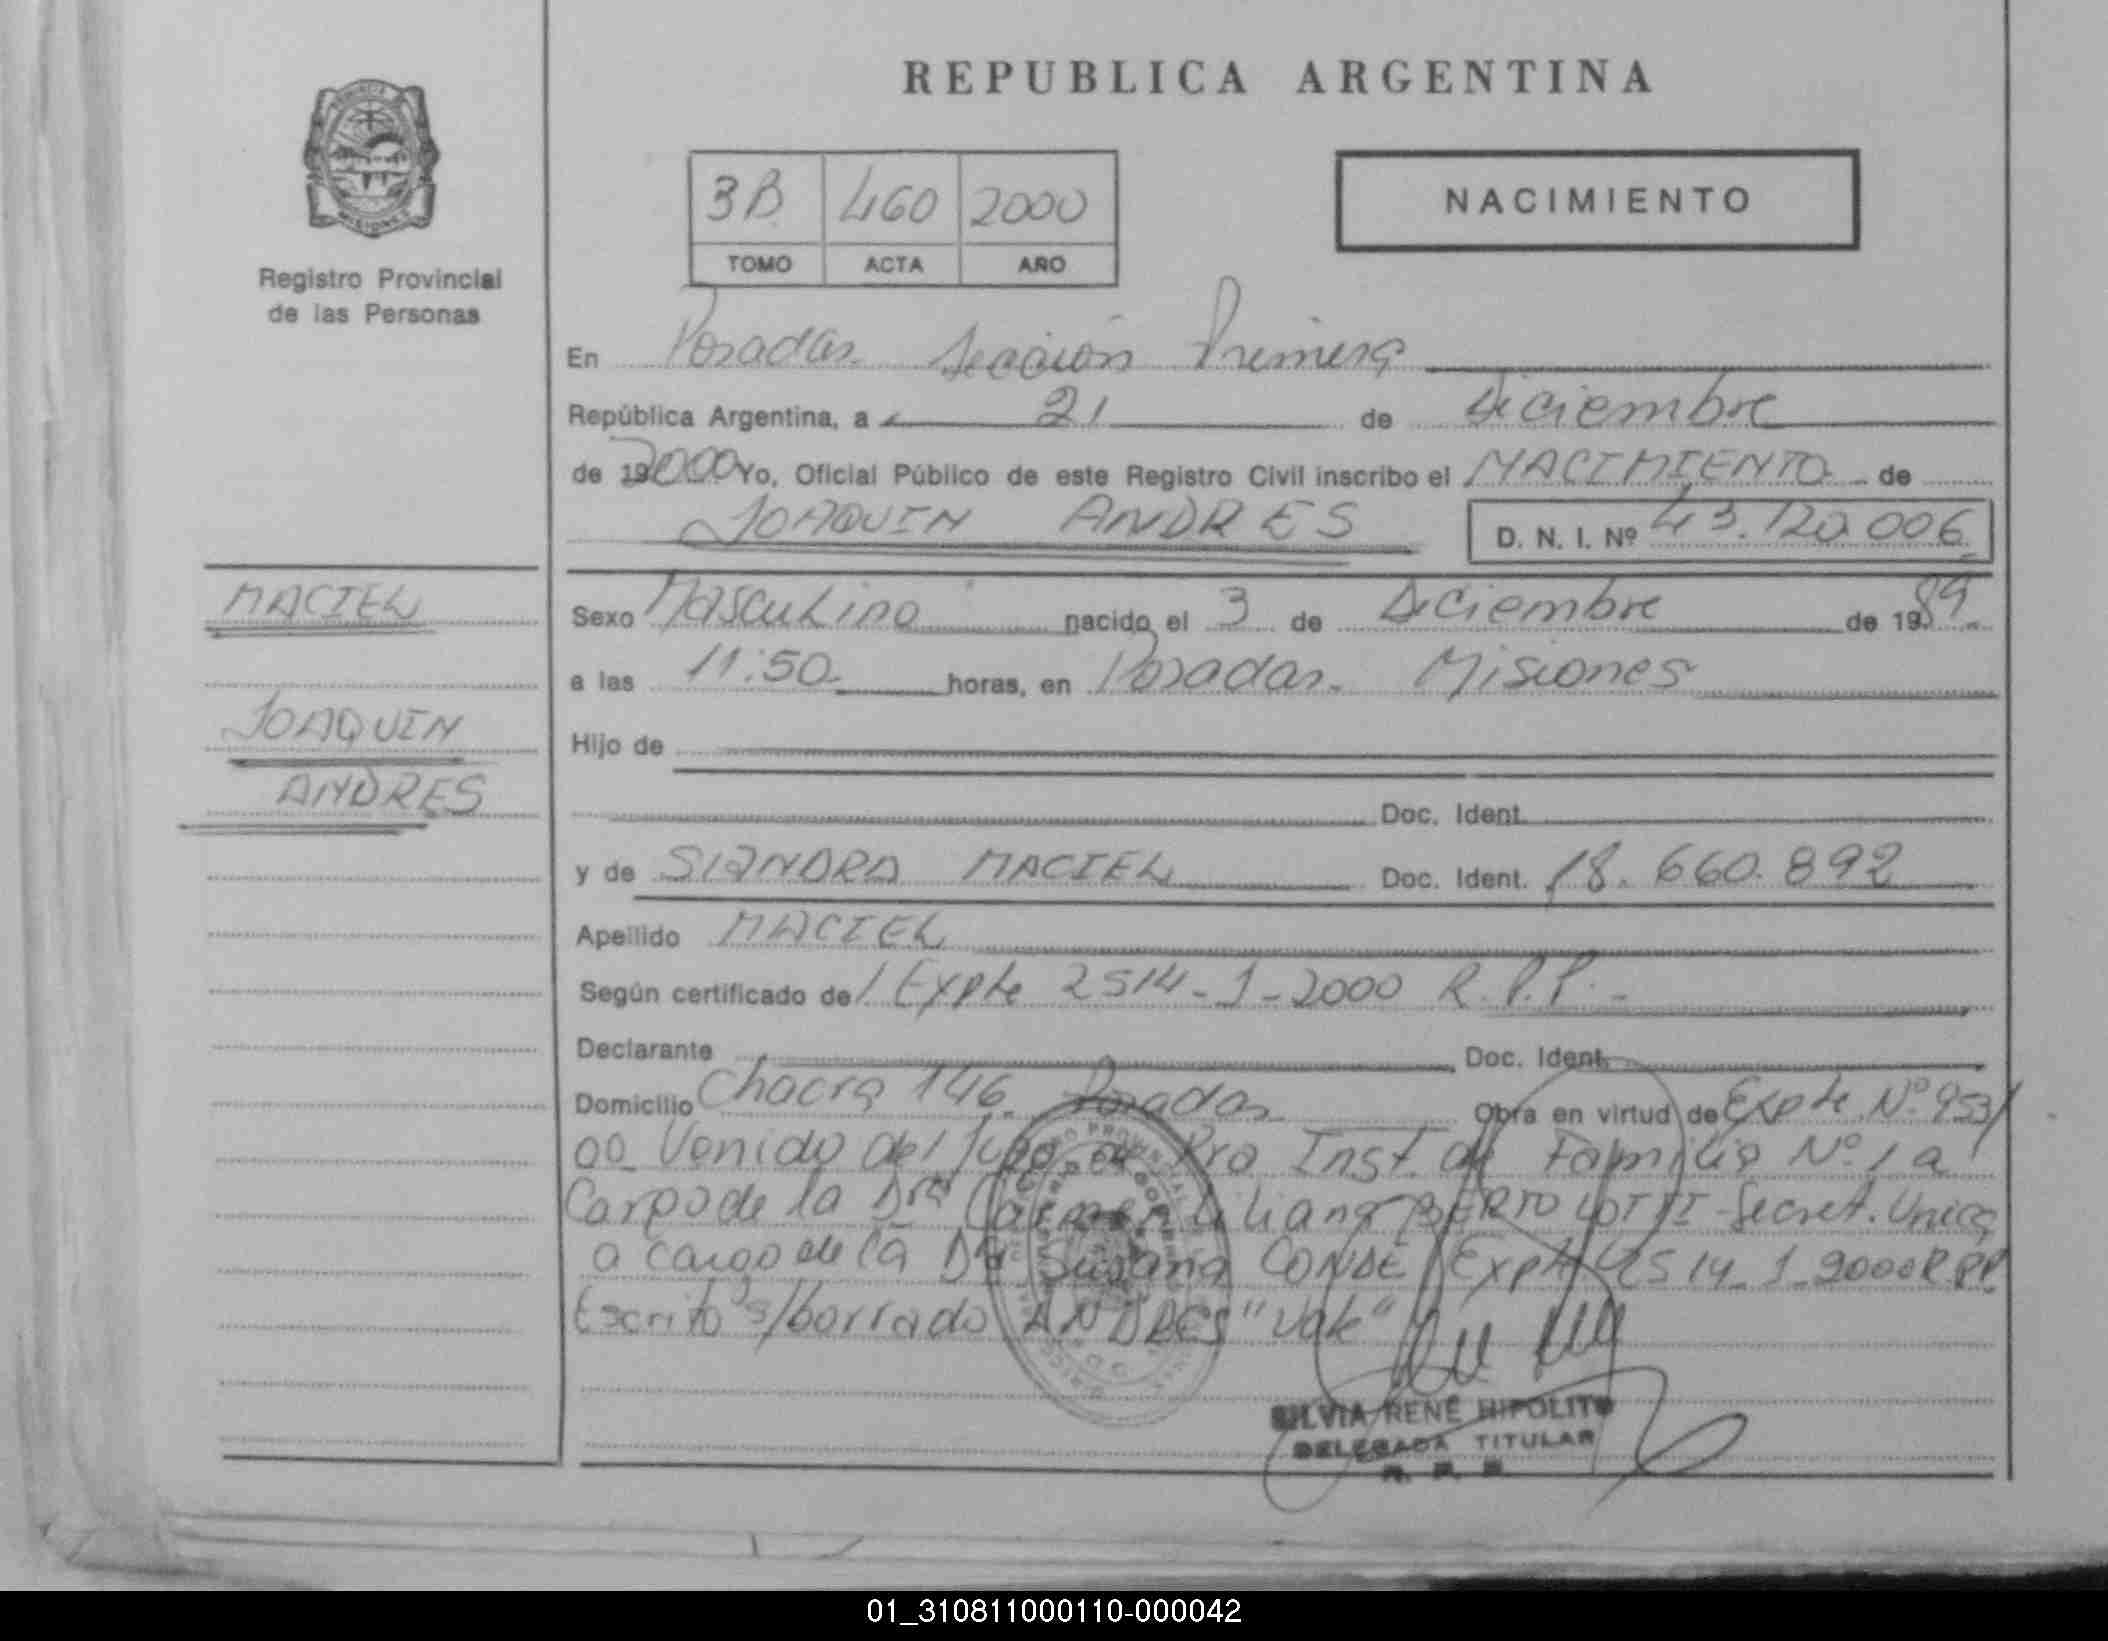 REPUBLICA ARGENTINA
3B 460 2000
TOMO ACTA AÑO
NACIMIENTO
Registro Provincial
de las Personas
En Posadas Sección Primera
República Argentina, a 21 de Diciembre
de 192000 Yo, Oficial Público de este Registro Civil inscribo el NACIMIENTO de
JOAQUIN ANDRES D. N. I. Nº 43.120.006
MACIEL
JOAQUIN
ANDRES
Sexo Masculino nacido el 3 de Diciembre de 1989.
a las 11:50 horas, en Posadas. Misiones
Hijo de
Doc. Ident.
y de SANDRA MACIEL Doc. Ident. 18.660.892
Apellido MACIEL
Según certificado de Expte 2514-1-2000 R.P.P.-
Declarante Doc. Ident.
Domicilio Chacra 146 Posadas Obra en virtud de Expte Nº 953/
00 Venido del Juzg de Pra Inst. de Familia Nº 1 a
Cargo de la Dra Carmen Liliana BERTOLOTTI - Secret. Unica
a cargo de la Dra Susana CONDE Expte 2514-1-2000 R.P.P.
Escrito s/borrado ANDRES "Vale"
SILVIA RENÉ HIPOLITO
DELEGADA TITULAR
R. P. P.
01_310811000110-000042